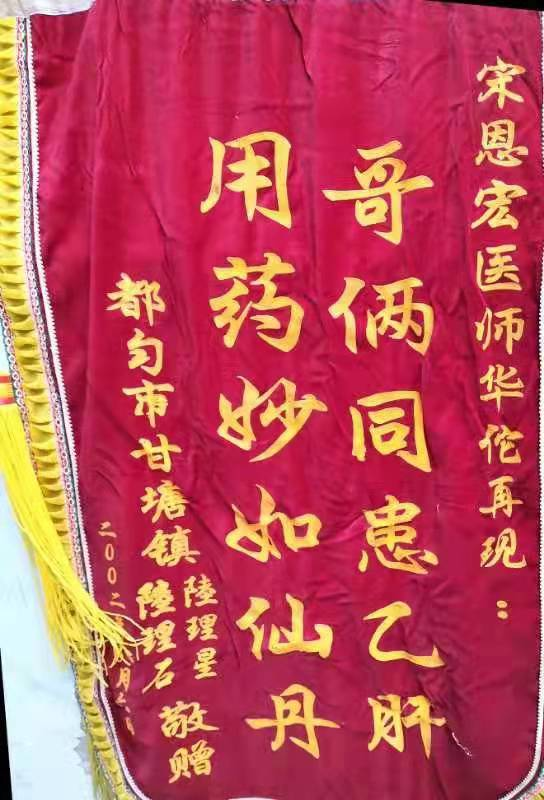 宋恩宏医师华佗再现：
哥俩同患乙肝
用药妙如仙丹
都匀市甘塘镇
陆理星
陆理石
敬赠
二00二年八月